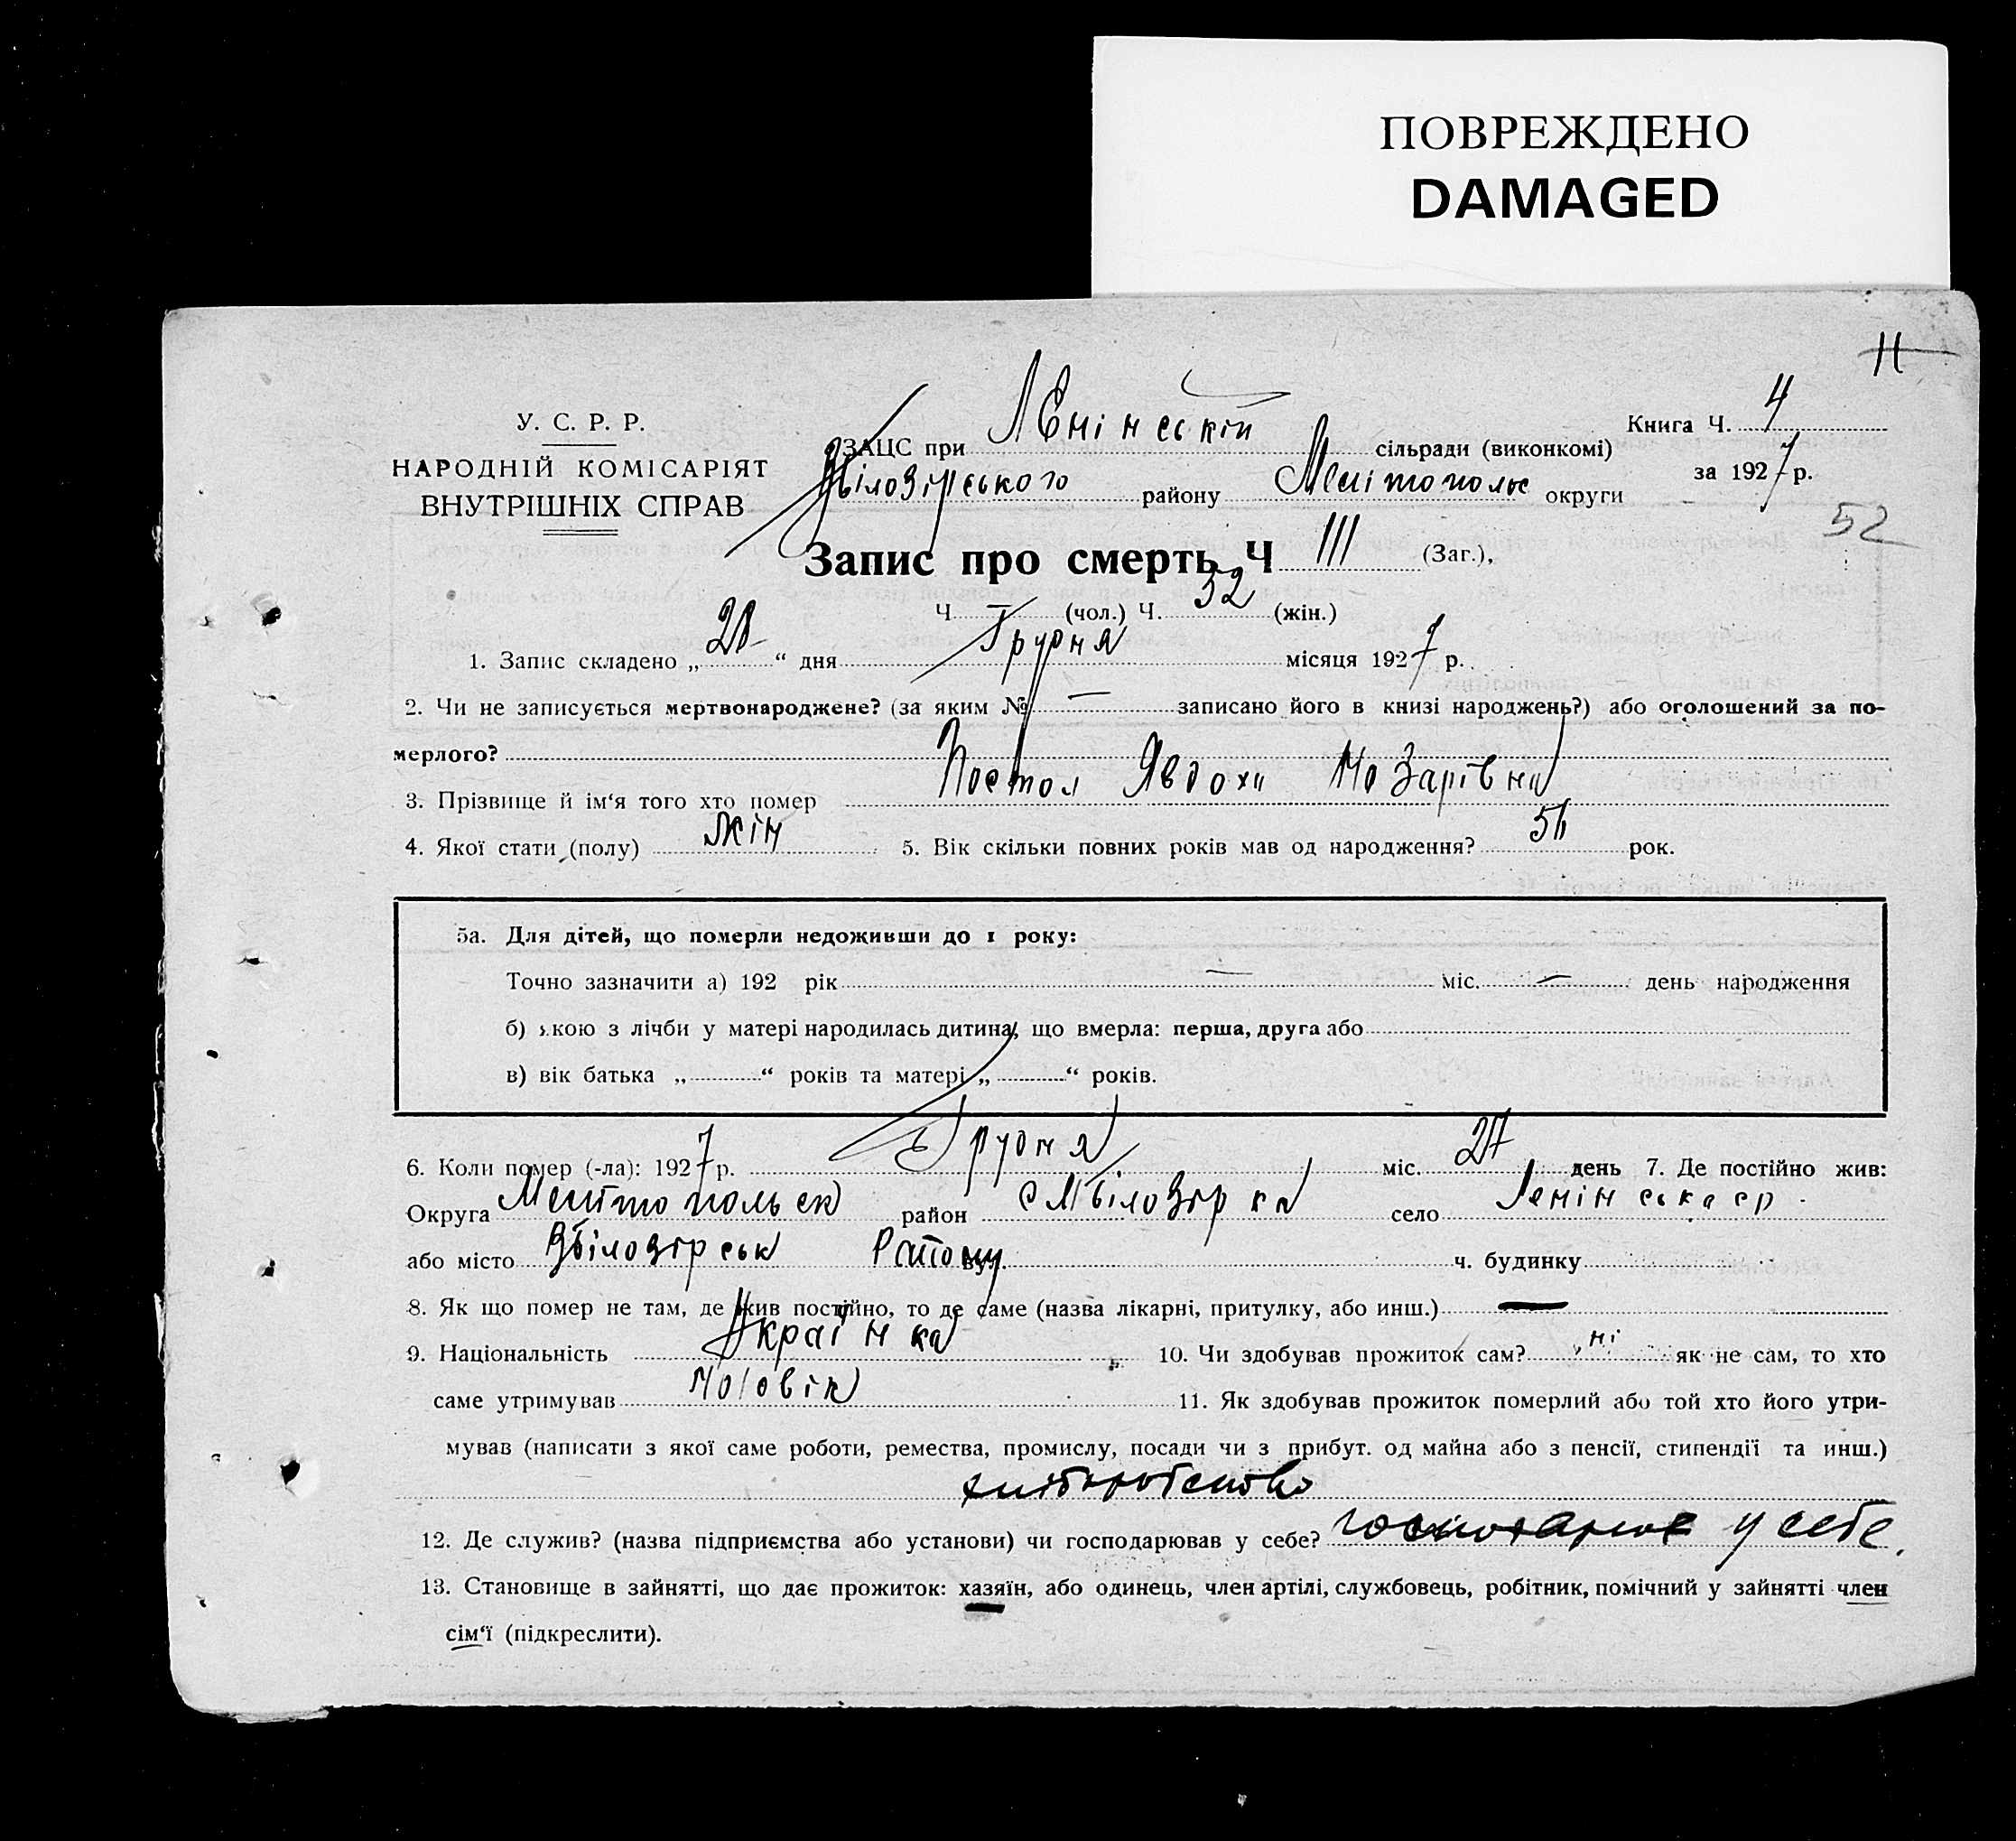 ПОВРЕЖДЕНО
DAMAGED
11
У. С. Р. Р.
НАРОДНІЙ КОМІСАРІЯТ
ВНУТРІШНІХ СПРАВ
ЗАЦС при Ленінській сільради (виконкомі)
Книга Ч. 4
Вбілозірського району Мелітопольс округи
за 1927 р.
52
Запис про смерть Ч 111 (Заг.),
Ч — (чол.) Ч. 52 (жін.)
1. Запис складено „28“ дня Грудня місяця 1927 р.
2. Чи не записується мертвонароджене? (за яким № — записано його в книзі народжень?) або оголошений за по-
мерлого?
3. Прізвище й ім‘я того хто помер Постол Явдоха Назарівна
4. Якої стати (полу) жін 5. Вік скільки повних років мав од народження? рок.
5а. Для дітей, що померли недоживши до 1 року:
Точно зазначити а) 192 рік — міс. — день народження
б) якою з лічби у матері народилась дитина, що вмерла: перша, друга або
в) вік батька „ “ років та матері „ “ років.
6. Коли помер (-ла): 1927 р. Грудня міс. 27 день 7. Де постійно жив:
Округа Мелітопольск район село Ленінська ср.
або місто Вбілозірськ Району вул. ч. будинку
8. Як що помер не там, де жив постійно, то де саме (назва лікарні, притулку, або инш.) —
9. Національність Українка 10. Чи здобував прожиток сам? ні як не сам, то хто
саме утримував Чоловік 11. Як здобував прожиток померлий або той хто його утри-
мував (написати з якої саме роботи, ремества, промислу, посади чи з прибут. од майна або з пенсії, стипендії та инш.)
хліборобство
12. Де служив? (назва підприємства або установи) чи господарював у себе? у себе.
13. Становище в зайнятті, що дає прожиток: хазяїн, або одинець, член артілі, службовець, робітник, помічний у зайнятті член
сім‘ї (підкреслити).